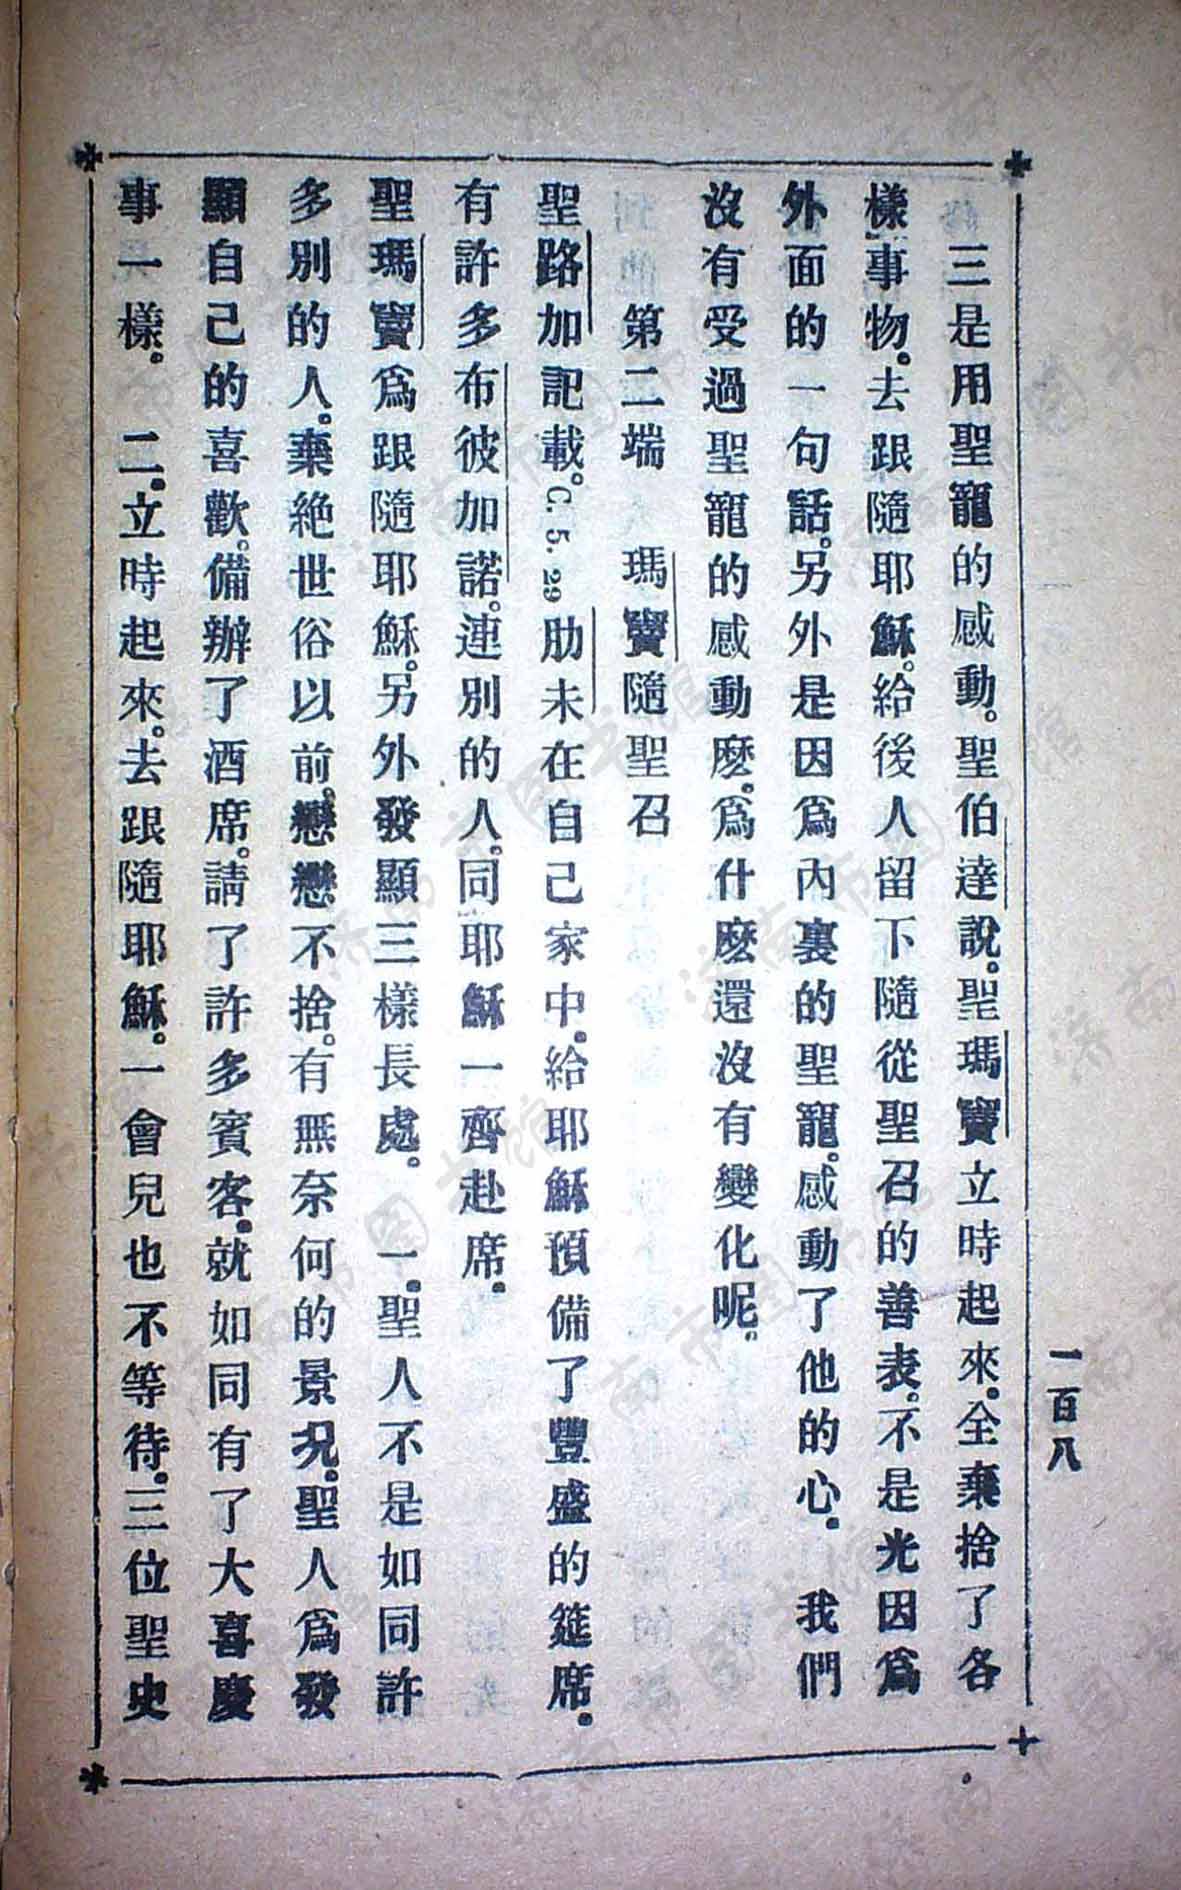 一百八
三是用聖寵的感動。聖伯達說。聖瑪竇立時起來。全棄捨了各
樣事物。去跟隨耶穌。給後人留下隨從聖召的善表。不是光因爲
外面的一句話。另外是因爲內裏的聖寵。感動了他的心。 我們
沒有受過聖寵的感動麽。爲什麽還沒有變化呢。
第二端 瑪竇隨聖召
聖路加記載。C. 5. 29 肋未在自己家中。給耶穌預備了豐盛的筵席。
有許多布彼加諾。連別的人。同耶穌一齊赴席。
聖瑪竇爲跟隨耶穌。另外發顯三樣長處。 一。聖人不是如同許
多別的人。棄絕世俗以前。戀戀不捨。有無奈何的景況。聖人爲發
顯自己的喜歡。備辦了酒席。請了許多賓客。就如同有了大喜慶
事一樣。 二。立時起來。去跟隨耶穌。一會兒也不等待。三位聖史
济南市图书馆